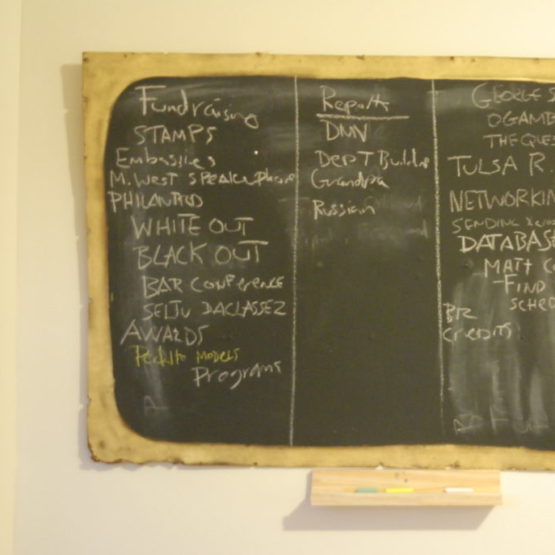 Fundraising
STAMPS
Embassies
M. WEST SPEAKERPHONE
PHILANTROD
WHITE OUT
BLACK OUT
BAR CONFERENCE
AWARDS
MODELS
Programs
Reports
DNN
DEPT Builder
Grandpa
Russian
GEORGE S
OGAMB
THE QUES
TULSA R.
NETWORKIN
SENDING
DATABASE
MATT CO
-FIND
SCHED
BR
Credits